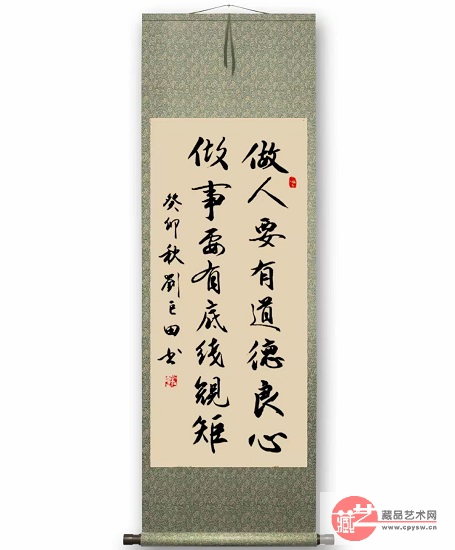 做人要有道德良心
做事要有底线规矩
癸卯秋刘巨田书
藏艺
藏品艺术网
www.cpysw.cn